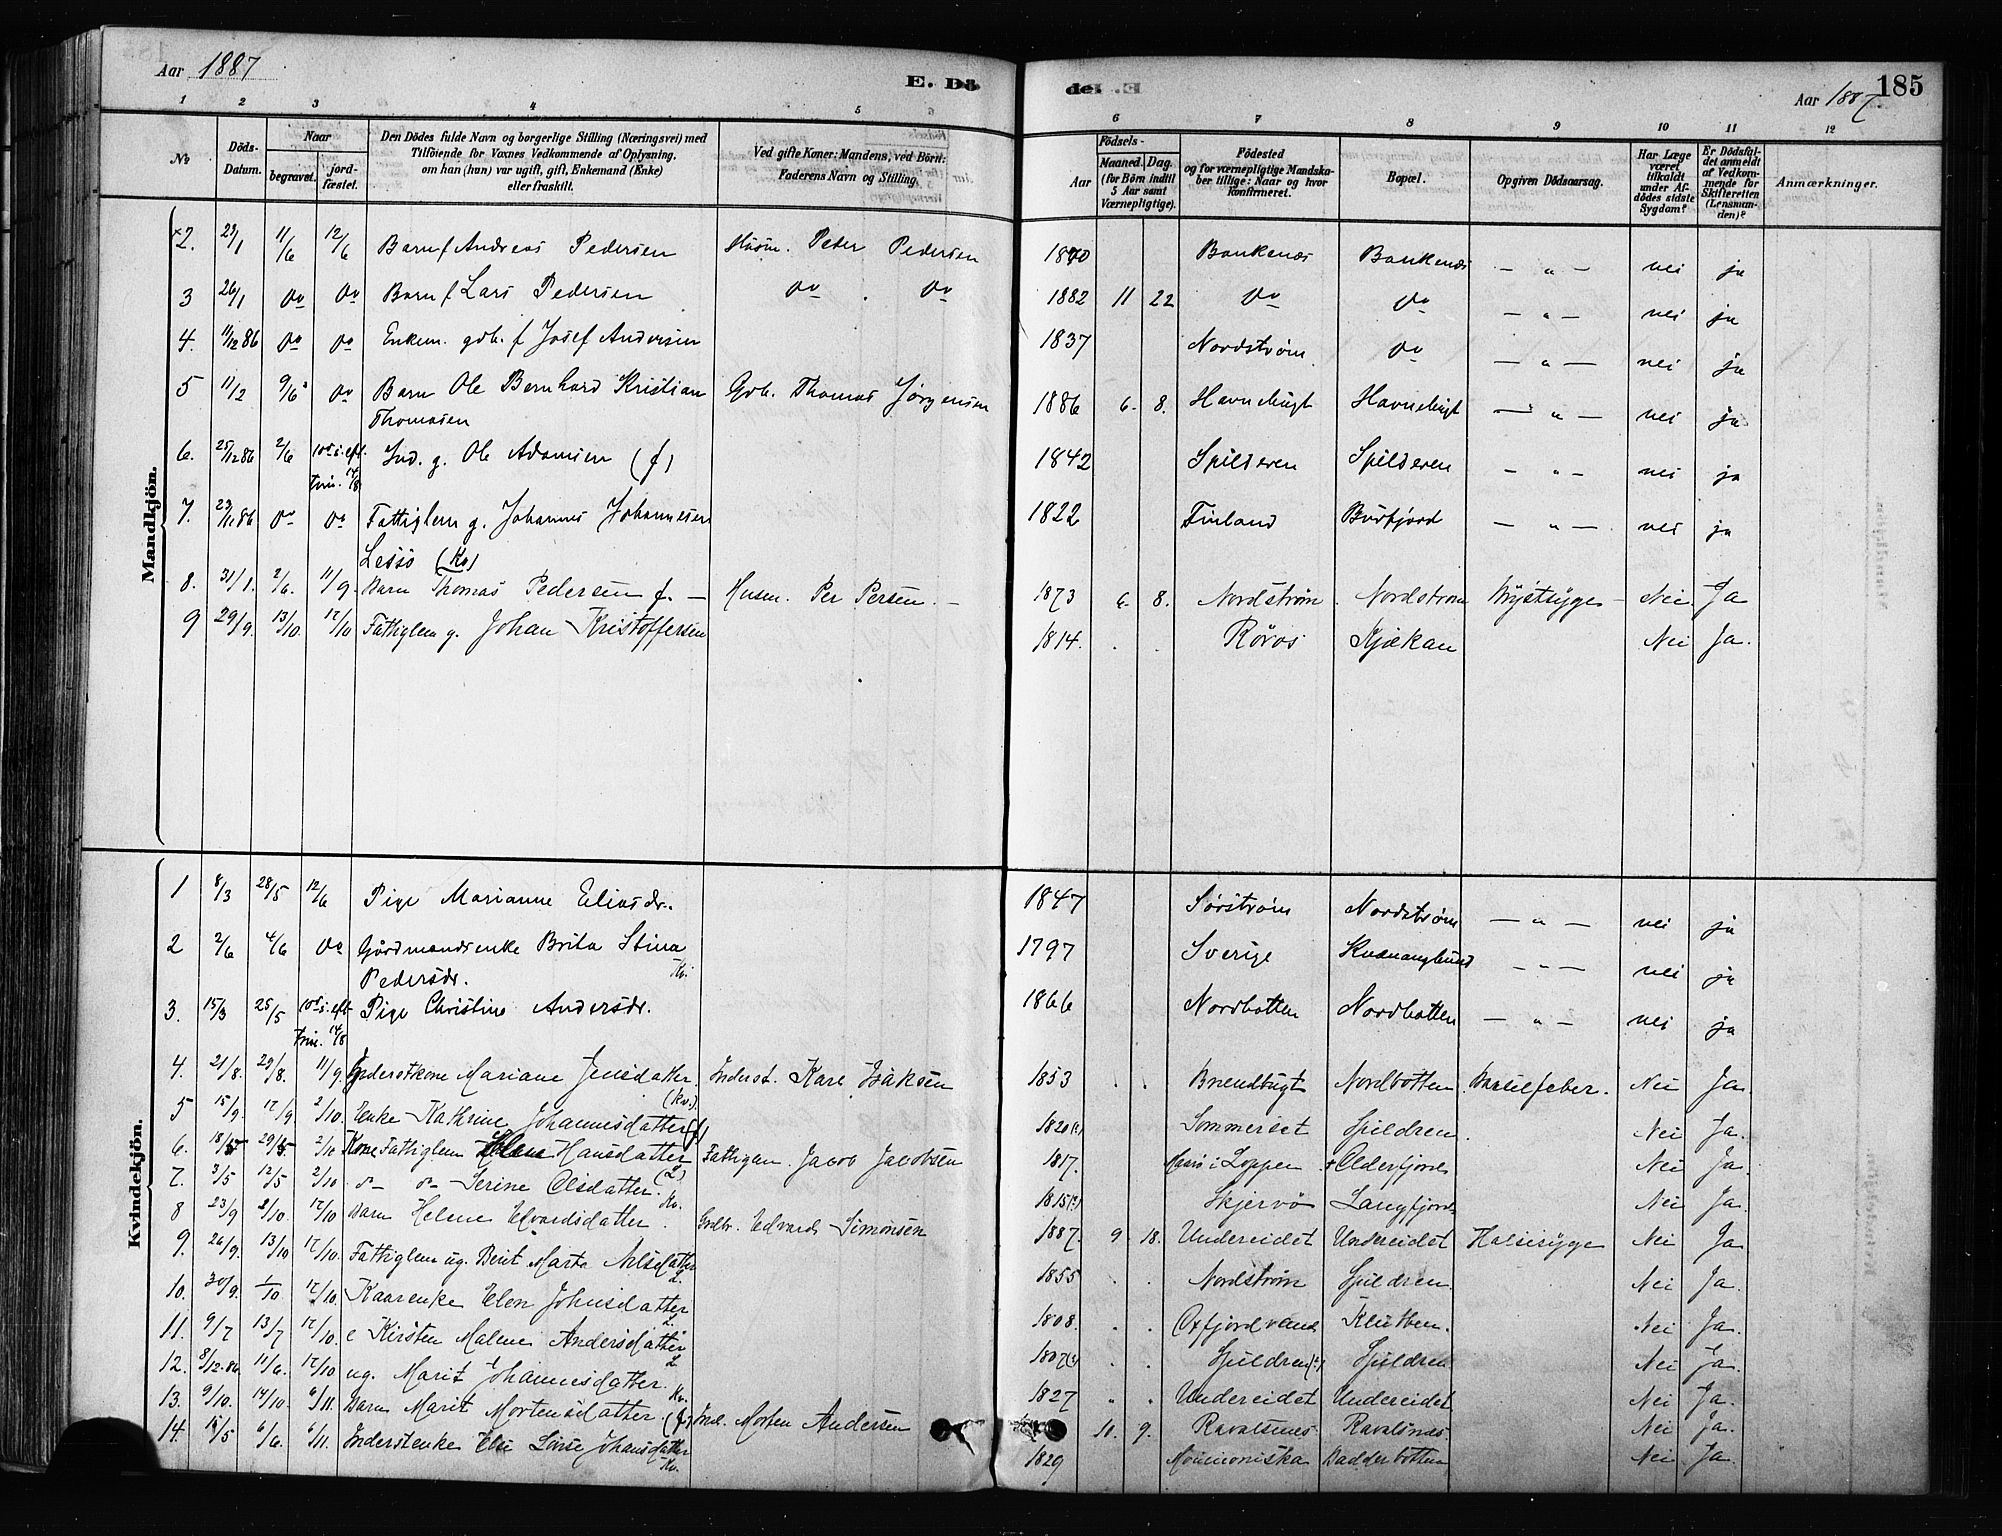 Aar 1887
E. Dö
de! E.
Aar 1887.
185
1 2 3 4 5 6 6 7 8 9 10 11 12
No
Döds-Datum.
Naar
begravet.
jordfæstet.
Den Dödes fulde Navn og borgerlige Stilling (Næringsvei) med
Tilföiende for Voxnes Vedkommende af Oplysning,
om han (hun) var ugift, gift, Enkemand (Enke)
eller fraskilt.
Ved gifte Koner: Mandens, ved Börn:
Faderens Navn og Stilling.
Födsels-
Aar
Maaned. Dag.
(for Börn indtil
5 Aar samt
Værnepligtige).
Födested
og for værnepligtige Mandska-
ber tillige: Naar og hvor
konfirmeret.
Bopæl.
Opgiven Dödsaarsag.
Har Læge
været
tilkaldt
under Af-
dödes sidste
Sygdom?
Er Dödsfal-
det anmeldt
af Vedkom-
mende for
Skifteretten
(Lensman-
den)?
Anmærkninger.
Mandkjön.
2. 23/1 11/6 12/6 Barn f Andreas Pedersen Husm. Peter Pedersen 1870 Bankenæs Bankenæs — " — nei ja
3 26/1 do do Barn f Lars Pedersen do do 1882 11 22 do do — " — nei ja
4. 11/12 86 do do Enkem. gdb. f Josef Andersen 1837 Nordstrøm do — " — nei ja
5 11/2 9/6 do Barn Ole Bernhard Kristian Gdb. Thomas Jørgensen 1886 6. 8. Havnebugt Havnebugt — " — nei ja
Thomasen
6. 25/12 86 2/6 10de s. eft. Ind. g. Ole Adamsen (f) 1842 Spilderen Spilderen — " — nei ja
Trin. 14/8
7. 23/12 86 do do Fattiglem g. Johannes Johannesen 1822 Finland Burfjord — " — nei ja
Lesso (Kv)
8. 31/1. 2/6. 11/9. Barn Thomas Pedersen f. — Husm. Per Persen. — 1873 6. 8. Nordstrøm Nordstrøm Brystsyge — Nei Ja
9 29/9. 13/10. 17/10 Fattiglem g. Johan Kristoffersen 1814. . . Røros Kjækan Nei Ja.
Kvindekjön.
1 8/3 28/5 12/6 Pige Marianne Eliasdr. 1847 Sørstrøm Nordstrøm — " — nei ja
2 2/6 4/6 do Gårdmandsenke Brita Stina 1797 Sverige Kvænangbund — " — nei ja
Pedersdr. Kv.
3. 15/3 25/5 10de s. eft. Pige Christine Andersdr. 1866 Nordbotten Nordbotten — " — nei ja
Trin. 14/8
4. 21/8. 29/8. 11/9. Inderstkone Mariane Jensdatter (Kv.) Inderst. Karl Isaksen 1853 . . Brendbugt Nordbotten Barselfeber. Nei Ja.
5 15/9. 17/9. 2/10. Enke Kathrine Johannesdatter (f) 1820(?) Sommerset Spildren. Nei Ja.
6. 18/5 29/5 2/10 Kone Fattiglem Elen Hansdatter (L) Fattiglem. Jacob Jacobsen 1817. Loppen Olderfjord Nei Ja.
7. 3/5 12/5 2/10 do do Serine Olsdatter. Kv. 1815(?) Skjervö Langfjord Nei Ja.
8 23/9 2/10. 17/10 Barn Helene Edvardsdatter. Grdbr. Edvard Simonsen 1887. 9 18. Undereidet Undereidet Halssyge Nei Ja
9. 26/9. 13/10 17/10. Fattiglem ug. Berit Marta Nilsdatter L. 1855 . . Nordstrøm Spildren Nei Ja.
10. 30/9. 1/10 17/10. Kaarenke Elen Johnsdatter L. 1808. . . Oxfjordvand Nei Ja.
11. 9/7 13/7 17/10. e Kirsten Malene Andersdatter L 1807(?) . . Spildren(?) Spildren Nei Ja.
12. 8/12.86 11/6. 17/10 ug. Marit Johannesdatter. Kv. 1827 " " Undereidet Undereidet Nei Ja.
13. 9/10. 14/10. 6/11. Barn Marit Mortensdatter. (f.) Ind. Morten Andersen 11. 9. Ravalsnes Ravalsnæs. Nei Ja.
14. 15/5 6/6. 6/11. Inderstenke Else Lovise Johansdatter Kv. 1829 Badderbotten Nei Ja